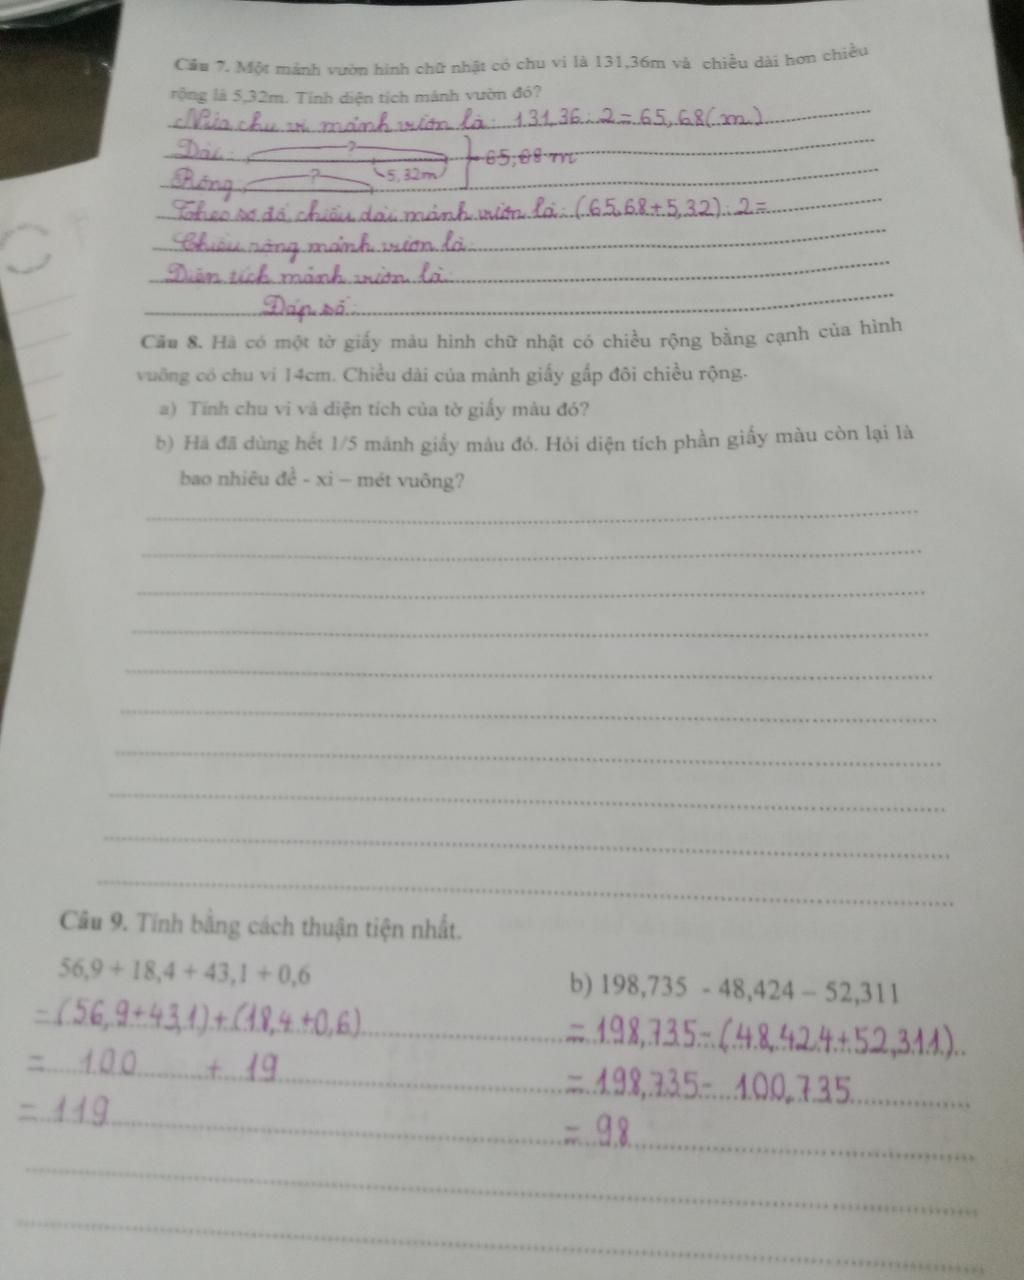 Câu 7. Một mảnh vườn hình chữ nhật có chu vi là 131,36m và chiều dài hơn chiều
rộng là 5,32m. Tính diện tích mảnh vườn đó?
Nửa chu vi mảnh vườn là: 131,36 : 2 = 65,68 (m)
Dài: ?
65,68 m
Rộng: ? 5,32m
Theo sơ đồ, chiều dài mảnh vườn là: (65,68 + 5,32) : 2 =
Chiều rộng mảnh vườn là:
Diện tích mảnh vườn là:
Đáp số:
Câu 8. Hà có một tờ giấy màu hình chữ nhật có chiều rộng bằng cạnh của hình
vuông có chu vi 14cm. Chiều dài của mảnh giấy gấp đôi chiều rộng.
a) Tính chu vi và diện tích của tờ giấy màu đó?
b) Hà đã dùng hết 1/5 mảnh giấy màu đó. Hỏi diện tích phần giấy màu còn lại là
bao nhiêu đề - xi – mét vuông?
Câu 9. Tính bằng cách thuận tiện nhất.
56,9 + 18,4 + 43,1 + 0,6
= (56,9 + 43,1) + (18,4 + 0,6)
= 100 + 19
= 119
b) 198,735 - 48,424 – 52,311
= 198,735 - (48,424 + 52,311)
= 198,735 - 100,735
= 98